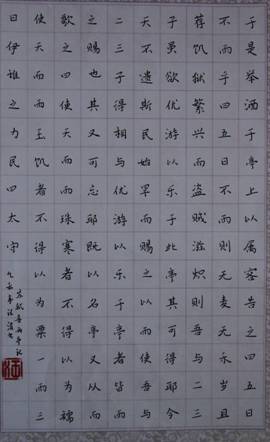 于是举酒于亭上以属客告之曰五日
不雨乎曰五日不雨则无麦无禾岁且
荐饥狱繁兴而盗贼滋炽则吾与二三
子虽欲优游以乐于此亭其可得耶今
天不遗斯民始旱而赐之以雨使吾与
二三子得相与优游以乐于亭者皆雨
之赐也其又可忘耶既以名亭又从而
歌之曰使天而雨珠寒者不得以为襦
使天而雨玉饥者不得以为粟一雨三
日伊谁之力民曰太守
苏轼喜雨亭记